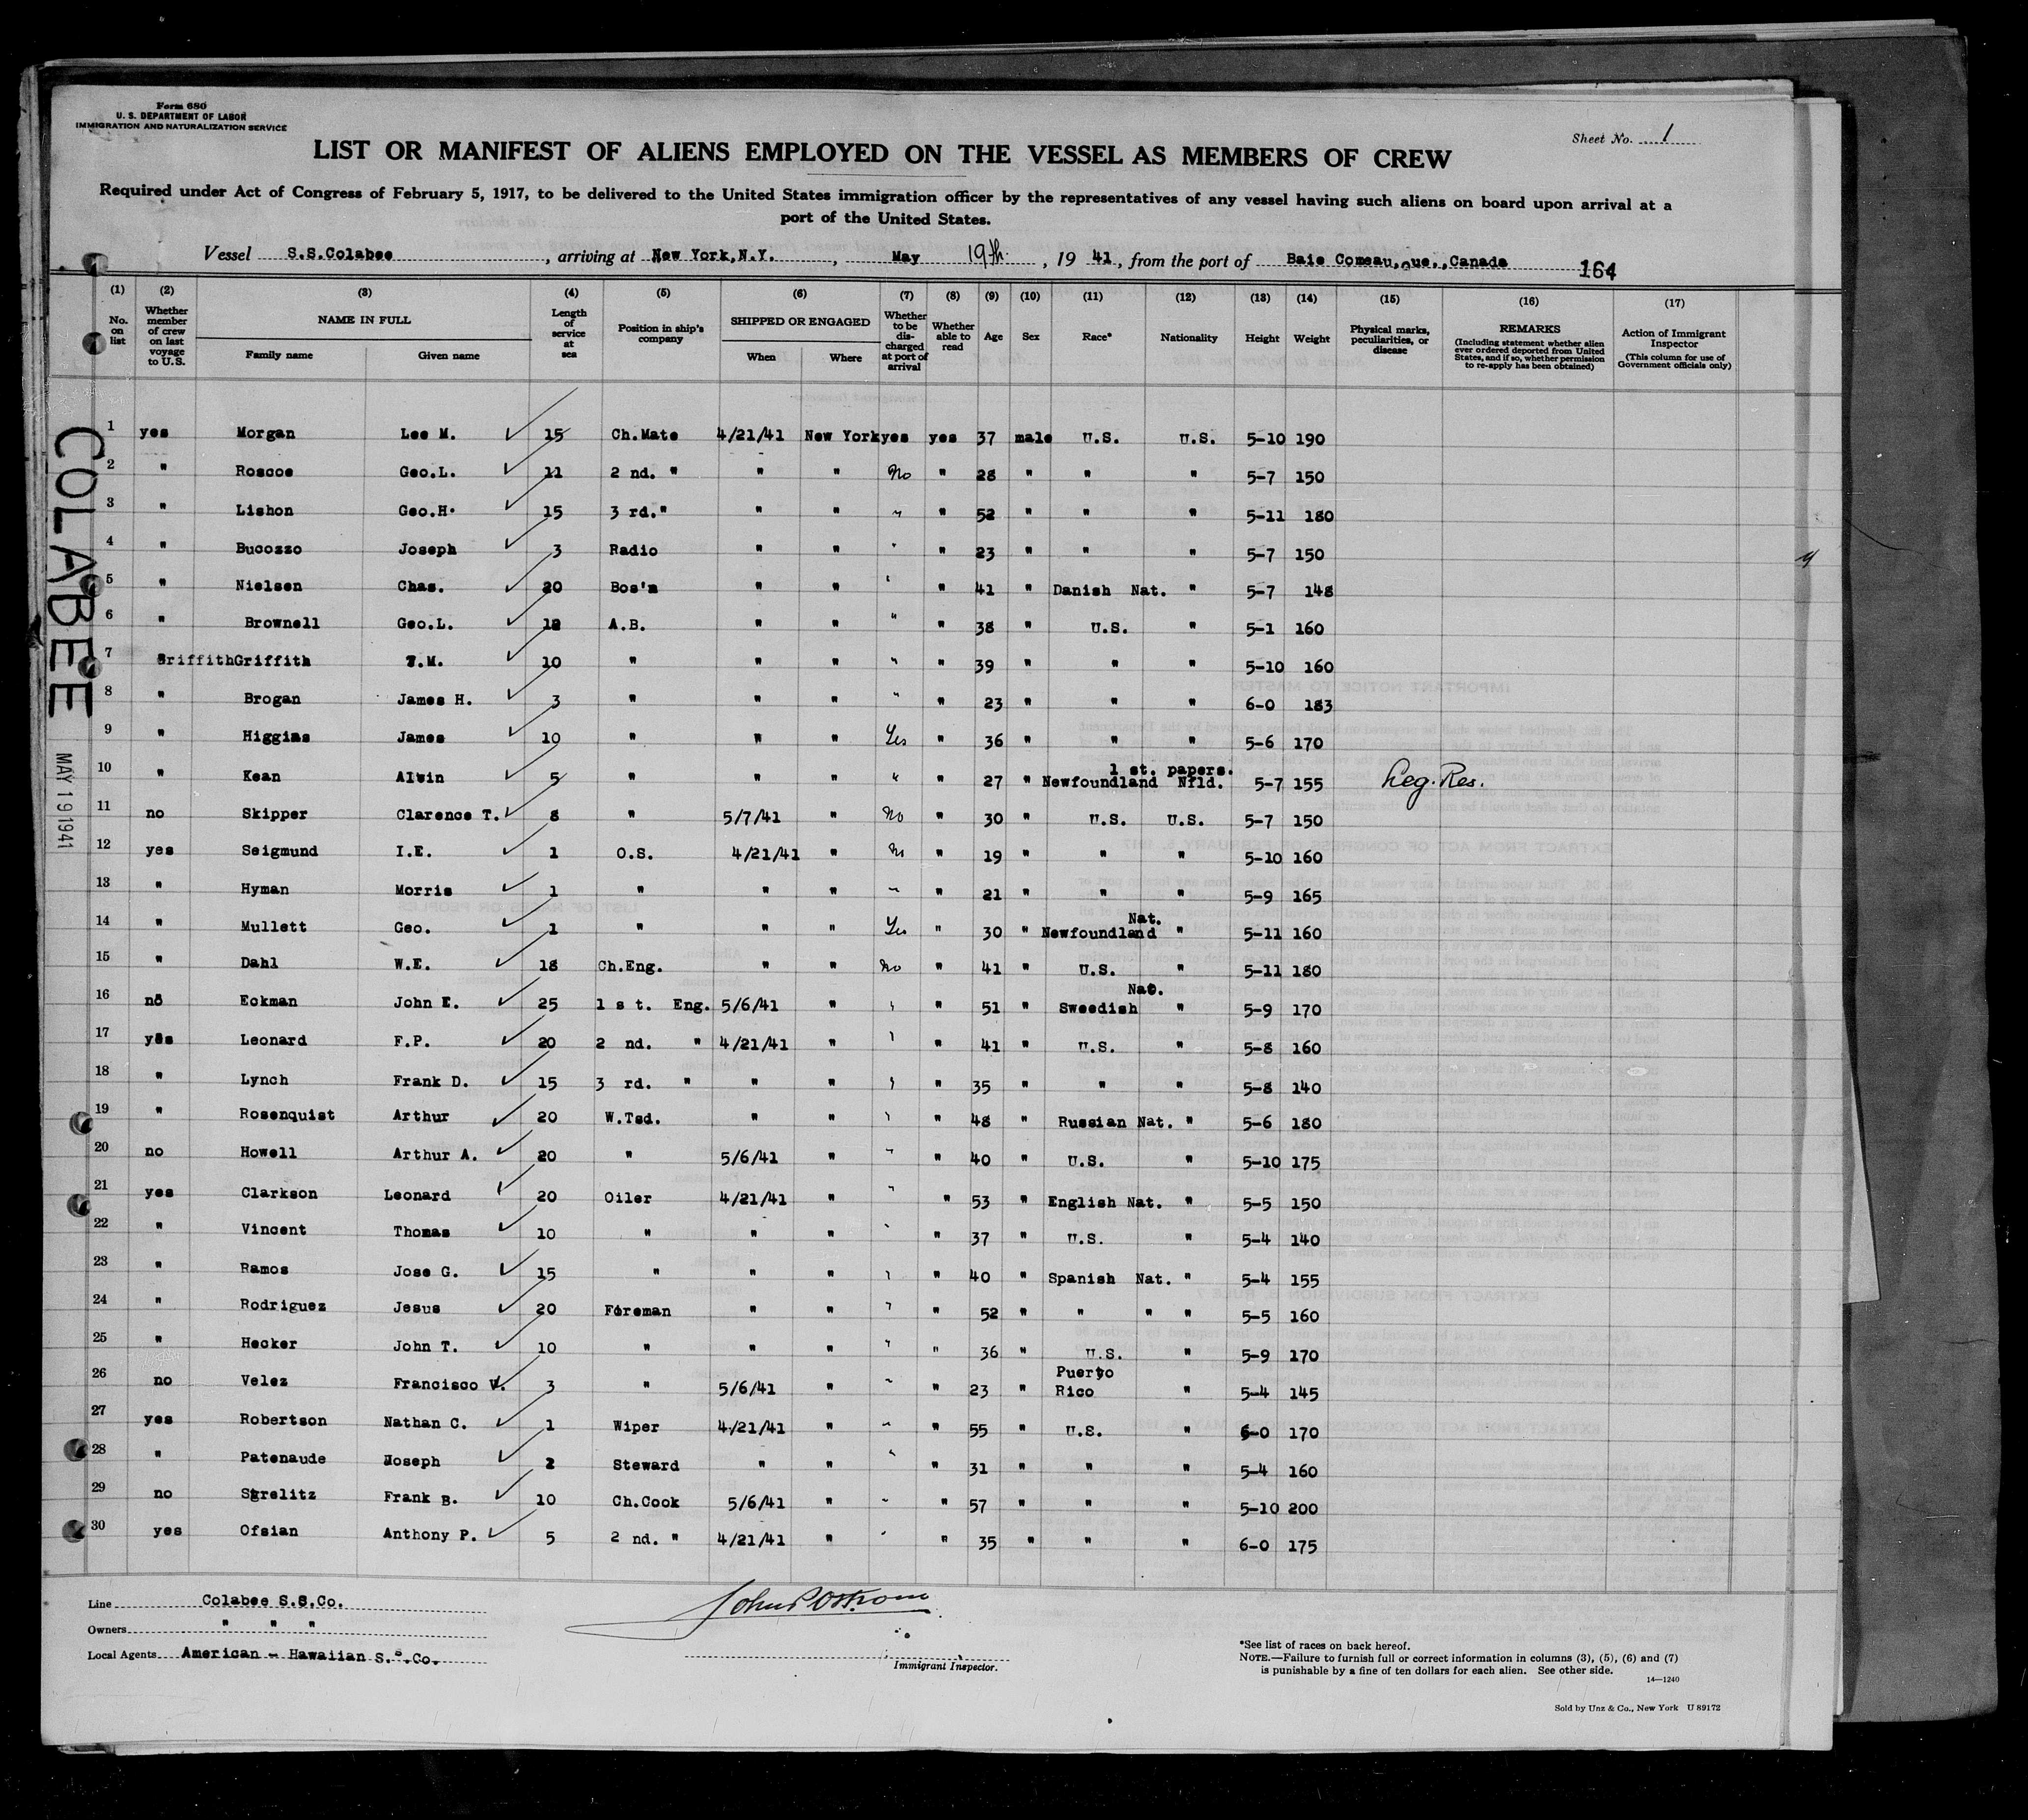 Form 680
U. S. DEPARTMENT OF LABOR
IMMIGRATION AND NATURALIZATION SERVICE
Sheet No. 1
LIST OR MANIFEST OF ALIENS EMPLOYED ON THE VESSEL AS MEMBERS OF CREW
Required under Act of Congress of February 5, 1917, to be delivered to the United States immigration officer by the representatives of any vessel having such aliens on board upon arrival at a
port of the United States.
Vessel S.S.Colabee, arriving at New York,N.Y., May 19th, 19 41, from the port of Baie Comeau, ue.,Canada 164
(1) No. on list (2) Whether member of crew on last voyage to U.S. (3) NAME IN FULL Family name Given name (4) Length of service at sea (5) Position in ship's company (6) SHIPPED OR ENGAGED When Where (7) Whether to be discharged at port of arrival (8) Whether able to read (9) Age (10) Sex (11) Race* (12) Nationality (13) Height (14) Weight (15) Physical marks, peculiarities, or disease (16) REMARKS (Including statement whether alien ever ordered deported from United States, and if so, whether permission to re-apply has been obtained) (17) Action of Immigrant Inspector (This column for use of Government officials only)
1 yes Morgan Lee M. 15 Ch.Mate 4/21/41 New York yes yes 37 male U.S. U.S. 5-10 190
2 " Roscoe Geo.L. 11 2 nd. " " " No " 28 " " " 5-7 150
3 " Lishon Geo.H. 15 3 rd." " " " " 52 " " " 5-11 180
4 " Bucozzo Joseph 3 Radio " " " " 23 " " " 5-7 150
5 " Nielsen Chas. 20 Bos'n " " " " 41 " Danish Nat. " 5-7 148
6 " Brownell Geo.L. 12 A.B. " " " " 38 " U.S. " 5-1 160
7 Griffith Griffith T.M. 10 " " " " " 39 " " " 5-10 160
8 " Brogan James H. 3 " " " " " 23 " " " 6-0 183
9 " Higgins James 10 " " " Yes " 36 " " " 5-6 170
10 " Kean Alvin 5 " " " " " 27 " Newfoundland 1 st. papers. Nfld. 5-7 155 Leg. Res.
11 no Skipper Clarence T. 8 " 5/7/41 " No " 30 " U.S. U.S. 5-7 150
12 yes Seigmund I.E. 1 O.S. 4/21/41 " No " 19 " " " 5-10 160
13 " Hyman Morris 1 " " " " " 21 " " " 5-9 165
14 " Mullett Geo. 1 " " " Yes " 30 " Newfoundland Nat. " 5-11 160
15 " Dahl W.E. 18 Ch.Eng. " " No " 41 " U.S. " 5-11 180
16 no Eckman John E. 25 1 s t. Eng. 5/6/41 " " " 51 " Sweedish Nat. " 5-9 170
17 yes Leonard F.P. 20 2 nd. " 4/21/41 " " " 41 " U.S. " 5-8 160
18 " Lynch Frank D. 15 3 rd. " " " " " 35 " " " 5-8 140
19 " Rosenquist Arthur 20 W.Tsd. " " " " 48 " Russian Nat. " 5-6 180
20 no Howell Arthur A. 20 " 5/6/41 " " " 40 " U.S. " 5-10 175
21 yes Clarkson Leonard 20 Oiler 4/21/41 " " " 53 " English Nat. " 5-5 150
22 " Vincent Thomas 10 " " " " " 37 " U.S. " 5-4 140
23 " Ramos Jose G. 15 " " " " " 40 " Spanish Nat. " 5-4 155
24 " Rodriguez Jesus 20 Foreman " " " " 52 " " " " 5-5 160
25 " Hecker John T. 10 " " " " " 36 " U.S. " 5-9 170
26 no Velez Francisco V. 3 " 5/6/41 " " " 23 " Puerto Rico " 5-4 145
27 yes Robertson Nathan C. 1 Wiper 4/21/41 " " " 55 " U.S. " 6-0 170
28 " Patenaude Moseph 2 Steward " " " " 31 " " " 5-4 160
29 no Strelitz Frank B. 10 Ch.Cook 5/6/41 " " " 57 " " " 5-10 200
30 yes Ofsian Anthony P. 5 2 nd. " 4/21/41 " " " 35 " " " 6-0 175
COLABEE
MAY 19 1941
Line Colabee S.S.Co.
Owners " " "
Local Agents American - Hawaiian S.S.Co.
John P Ostrom
Immigrant Inspector.
*See list of races on back hereof.
NOTE.—Failure to furnish full or correct information in columns (3), (5), (6) and (7)
is punishable by a fine of ten dollars for each alien. See other side.
14—1240
Sold by Unz & Co., New York U 89172